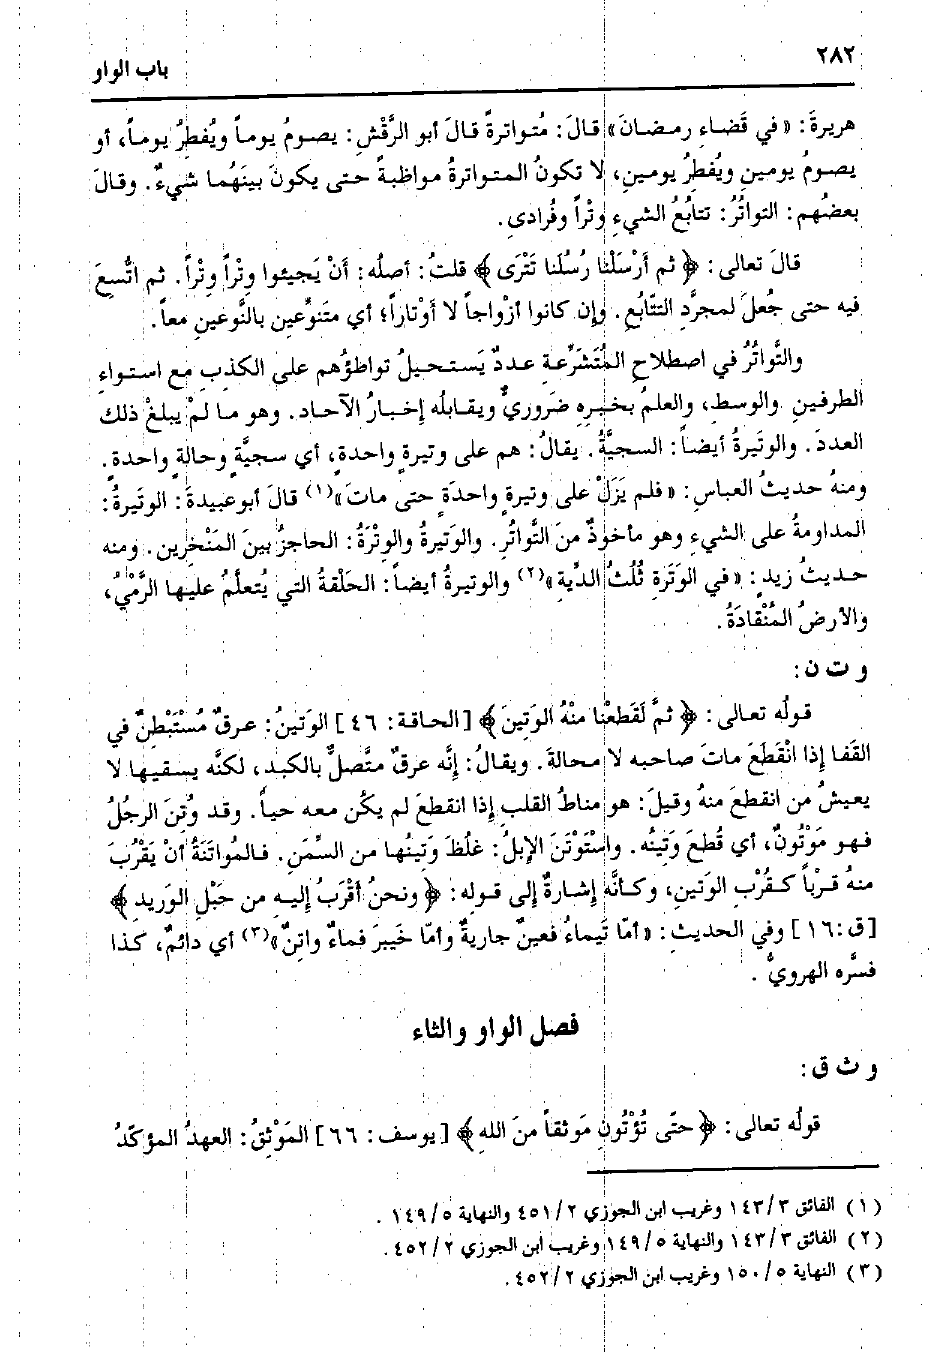 ٢٨٢
باب الواو
هريرةَ: «في قَضاءِ رمضانَ» قالَ: مُتواترةً قالَ أبو الرَّقْشِ: يصومُ يوماً ويُفطِرُ يوماً، أو
يصومُ يومينِ ويُفطِرُ يومينِ، لا تكونُ المتواترةُ مواظبةً حتى يكونَ بينَهُما شيءٌ. وقالَ
بعضُهم: التواتُرُ: تتابُعُ الشيءِ وتْراً وفُرادى.
قالَ تعالى: ﴿ ثم أَرْسَلْنا رُسُلَنا تَتْرَى ﴾ قلتُ: أصلُه: أَنْ يَجيئوا وتْراً وِتْراً. ثم اتُّسِعَ
فيه حتى جُعلَ لمجرَّدِ التتّابُعِ. وإن كانوا أزْواجاً لا أَوْتاراً؛ أي متَنوِّعين بالنَّوعينِ معاً.
والتَّواتُرُ في اصطلاحِ المُتَشَرِّعةِ عددٌ يَستحيلُ تواطؤُهم على الكذبِ مع استواءِ
الطرفينِ والوسطِ، والعلمُ بخبرِهِ ضَروريٌّ ويقابلُه إخبارُ الآحاد. وهو ما لمْ يبلغْ ذلك
العددَ. والوتَيرةُ أيضاً: السجيَّةُ. يقالُ: هم على وتيرةٍ واحدةٍ، أي سجيَّةٍ وحالةٍ واحدةٍ.
ومنهُ حديثُ العباسِ: «فلم يَزَلْ على وتيرةٍ واحدَةٍ حتى ماتَ»(١) قالَ أبوعبيدةَ: الوتَيرةُ:
المداومةُ على الشيءِ وهو مأخوذٌ منَ التَّواتُرِ. والوَتيرةُ والوتْرَةُ: الحاجزُ بينَ المَنْخِرين. ومنه
حديثُ زيدٍ: «في الوَتَرَةِ ثُلُثُ الدِّيةِ»(٢) والوتيرةُ أيضاً: الحَلْقةُ التي يُتعلَّمُ عليها الرَّمْيُ،
والأرضُ المُنْقادَةُ.
و ت ن:
قولُه تعالى: ﴿ ثمَّ لَقَطعْنا منْهُ الوَتِينَ ﴾ [الحاقة: ٤٦] الوَتينُ: عرقٌ مُسْتَبْطِنٌ في
القَفا إذا انْقَطَعَ ماتَ صاحبه لا محالةَ. ويقالُ: إنَّه عرقٌ متَّصلٌ بالكبد، لكنَّه يسقيها لا
يعيشُ من انقطعَ منهُ وقيلَ: هو مناطُ القلبِ إذا انقطعَ لم يكُن معه حياً. وقد وُتِنَ الرجلُ
فهو مَوْتُونٌ، أي قُطعَ وَتِينُه. واسْتَوْتَنَ الإبلُ: غلُظَ وَتِينُها من السِّمَنِ. فالمُواتَنَةُ أنْ يَقْرُبَ
منهُ قرْباً كقُرْبِ الوَتينِ، وكأنَّه إشارةٌ إلى قوله: ﴿ ونحنُ أقْرَبُ إليهِ من حَبْلِ الوَريدِ ﴾
[ق:١٦] وفي الحديثِ: «أمّا تَيماءُ فعينٌ جاريةٌ وأمّا خَيبرَ فماءٌ واتِنٌ»(٣) أي دَائمٌ، كذا
فسَّره الهرويُّ.
فصل الواو والثاء
و ث ق:
قولُه تعالى: ﴿ حتَّى تُؤْتُونِ مَوثقاً منَ اللهِ ﴾ [يوسف: ٦٦] المَوْثِقُ: العهدُ المؤكّدُ
(١) الفائق ١٤٣/٣ وغريب ابن الجوزي ٤٥١/٢ والنهاية ١٤٩/٥.
(٢) الفائق ١٤٣/٣ والنهاية ١٤٩/٥ وغريب ابن الجوزي ٤٥٢/٢.
(٣) النهاية ١٥٠/٥ وغريب ابن الجوزي ٤٥٢/٢.